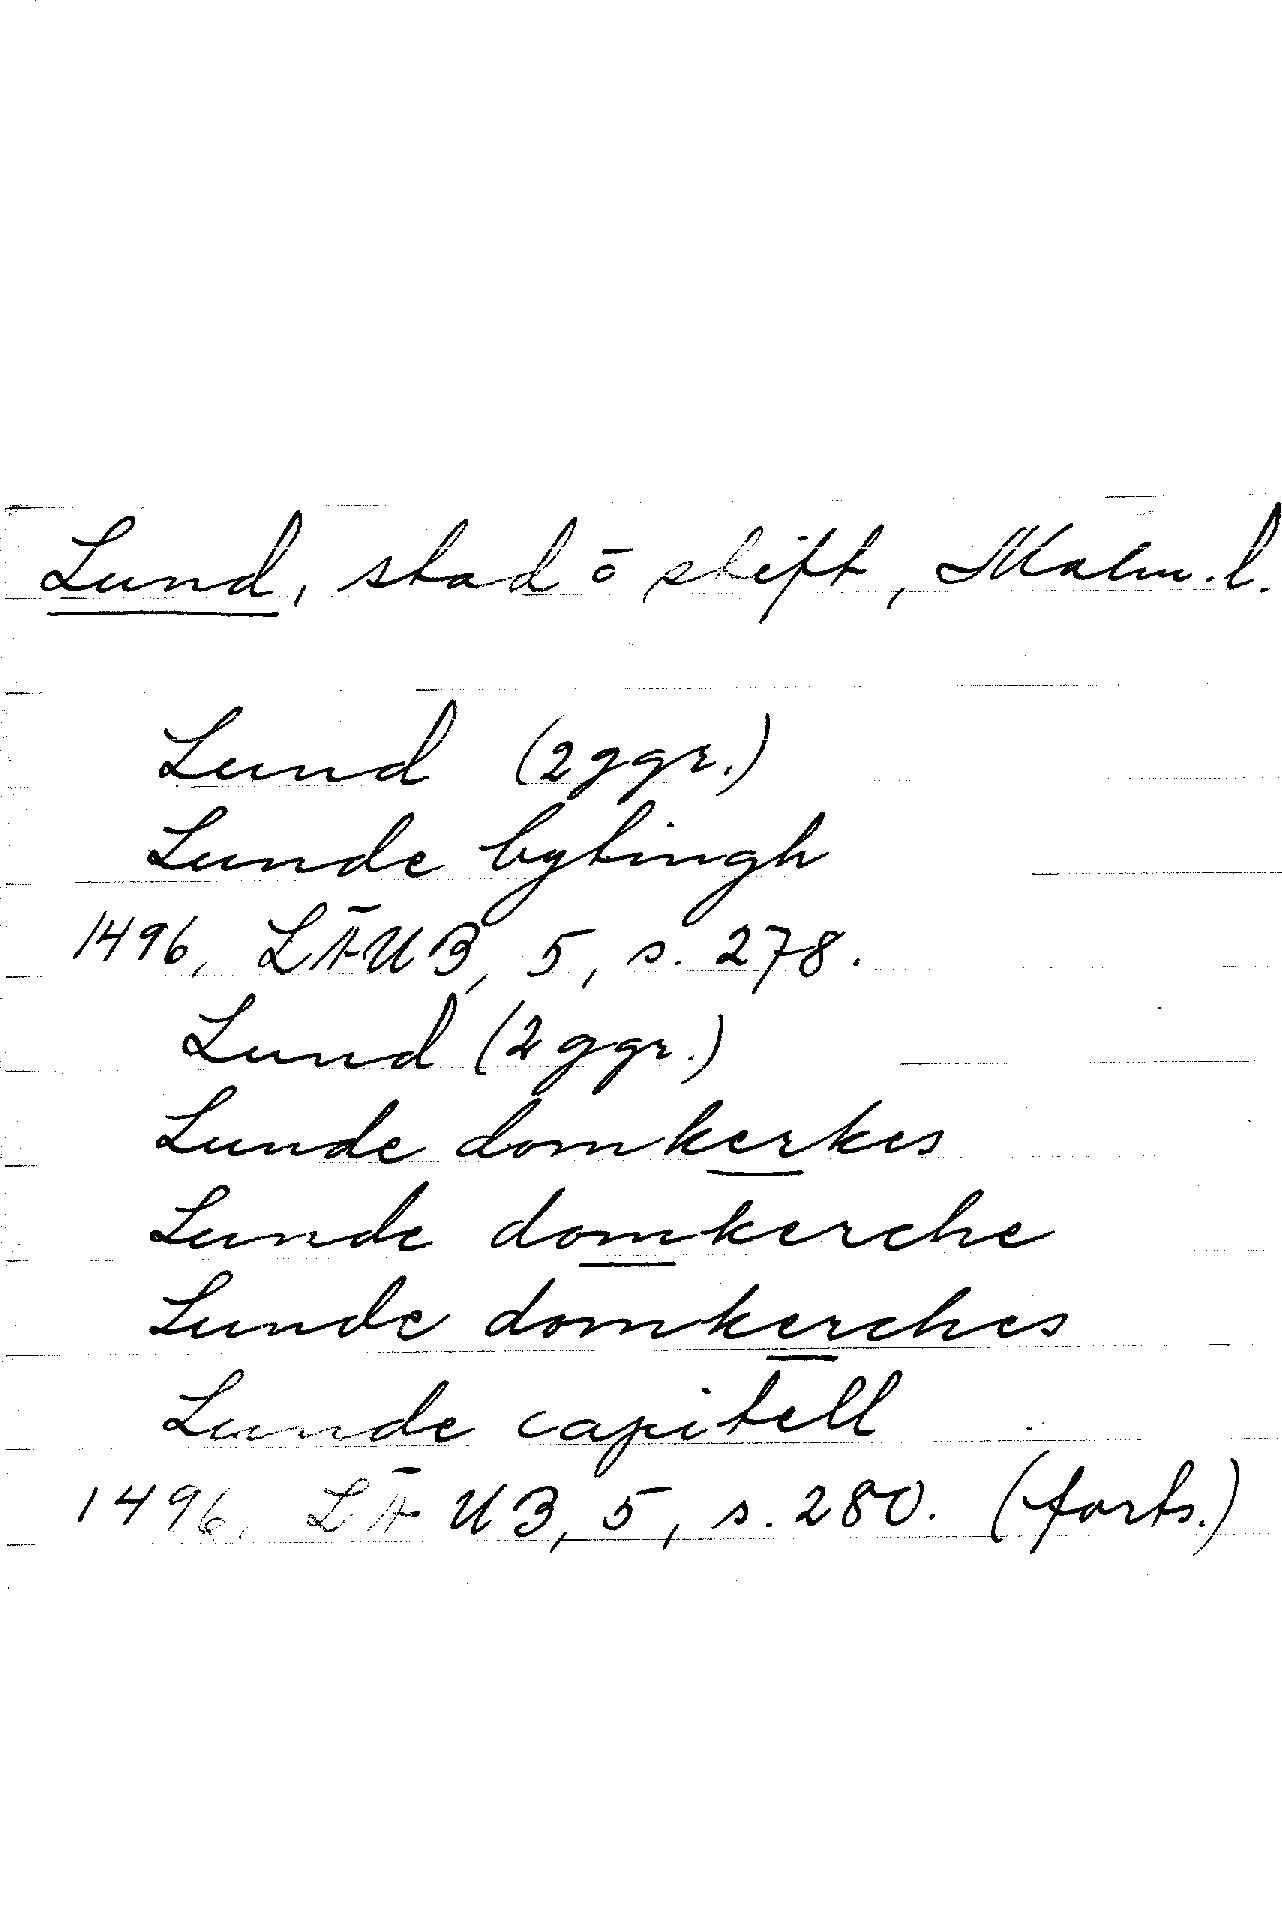 Lund, stad ō stift, Malm. l.
Lund (2 ggr.)
Lunde bytingh
1496, LÄUB, 5, s. 278.
Lund (2 ggr.)
Lunde domkerkes
Lunde domkerche
Lunde domkerches
Lunde capitell
1496, LÄUB, 5, s. 280. (forts.)